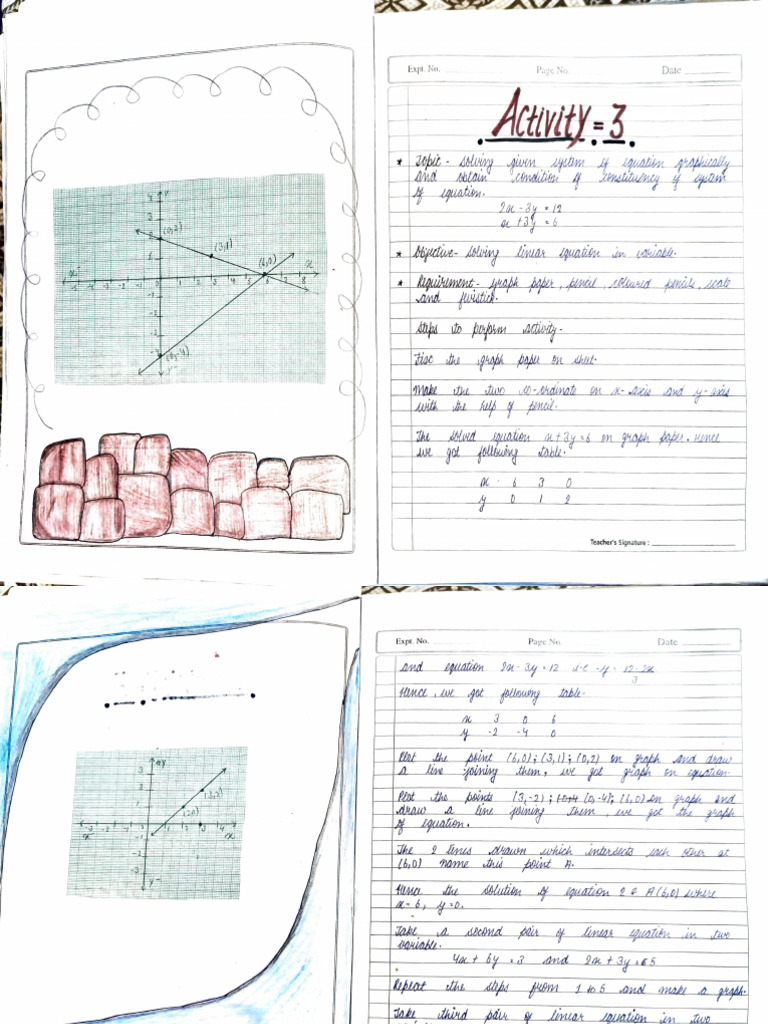 Expt. No.
Page No.
Date
Activity = 3
* Topic - Solving given system of equation graphically
and obtain condition of constituency of system
of equation.
2x - 3y = 12
x + 3y = 6
* Objective - solving linear equation in variable.
* Requirement - graph paper, pencil, coloured pencils, scale
and fevistick.
Steps to perform activity -
Fixc the graph paper on sheet.
Make the two co-ordinate on x-axis and y-axis
with the help of pencil.
The solved equation x+3y=6 on graph paper. Hence
we got following table.
x 6 3 0
y 0 1 2
Teacher's Signature :
(0,2)
(3,1)
(6,0)
(0,-4)
Expt. No.
Page No.
Date
and equation 2x - 3y = 12 i.e -y = 12-2x
3
Hence, we got following table.
x 3 0 6
y -2 -4 0
Plot the point (6,0); (3,1); (0,2) on graph and draw
a line joining them, we got graph on equation.
Plot the points (3,-2); (0,-4); (6,0) on graph and
draw a line joining them, we got the graph
of equation.
The 2 lines drawn which intersects each other at
(6,0) name this point A.
Hence the solution of equation 2 is A(6,0) where
x = 6, y = 0.
Take a second pair of linear equation in two
variable.
4x + 6y = 3 and 2x + 3y = 65
Repeat the steps from 1 to 5 and make a graph.
Take third pair of linear equation in two
(3,2)